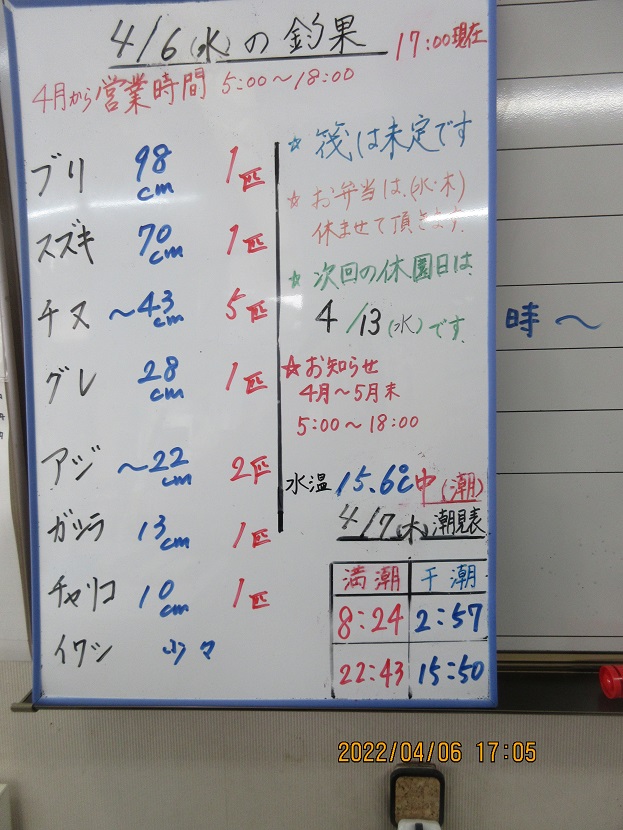 4/6(水)の釣果 17:00現在
4月から営業時間 5:00〜18:00
ブリ 98cm 1匹
スズキ 70cm 1匹
チヌ 〜43cm 5匹
グレ 28cm 1匹
アジ 〜22cm 2匹
ガシラ 13cm 1匹
チャリコ 10cm 1匹
イワシ 少々
☆ 筏は未定です
☆ お弁当は、(水・木)
休ませて頂きます。
☆ 次回の休園日は
4/13(水)です。
☆お知らせ
4月〜5月末
5:00〜18:00
水温 15.6℃ 中(潮)
4/7(木)潮見表
満潮 干潮
8:24 2:57
22:43 15:50
時〜
2022/04/06 17:05